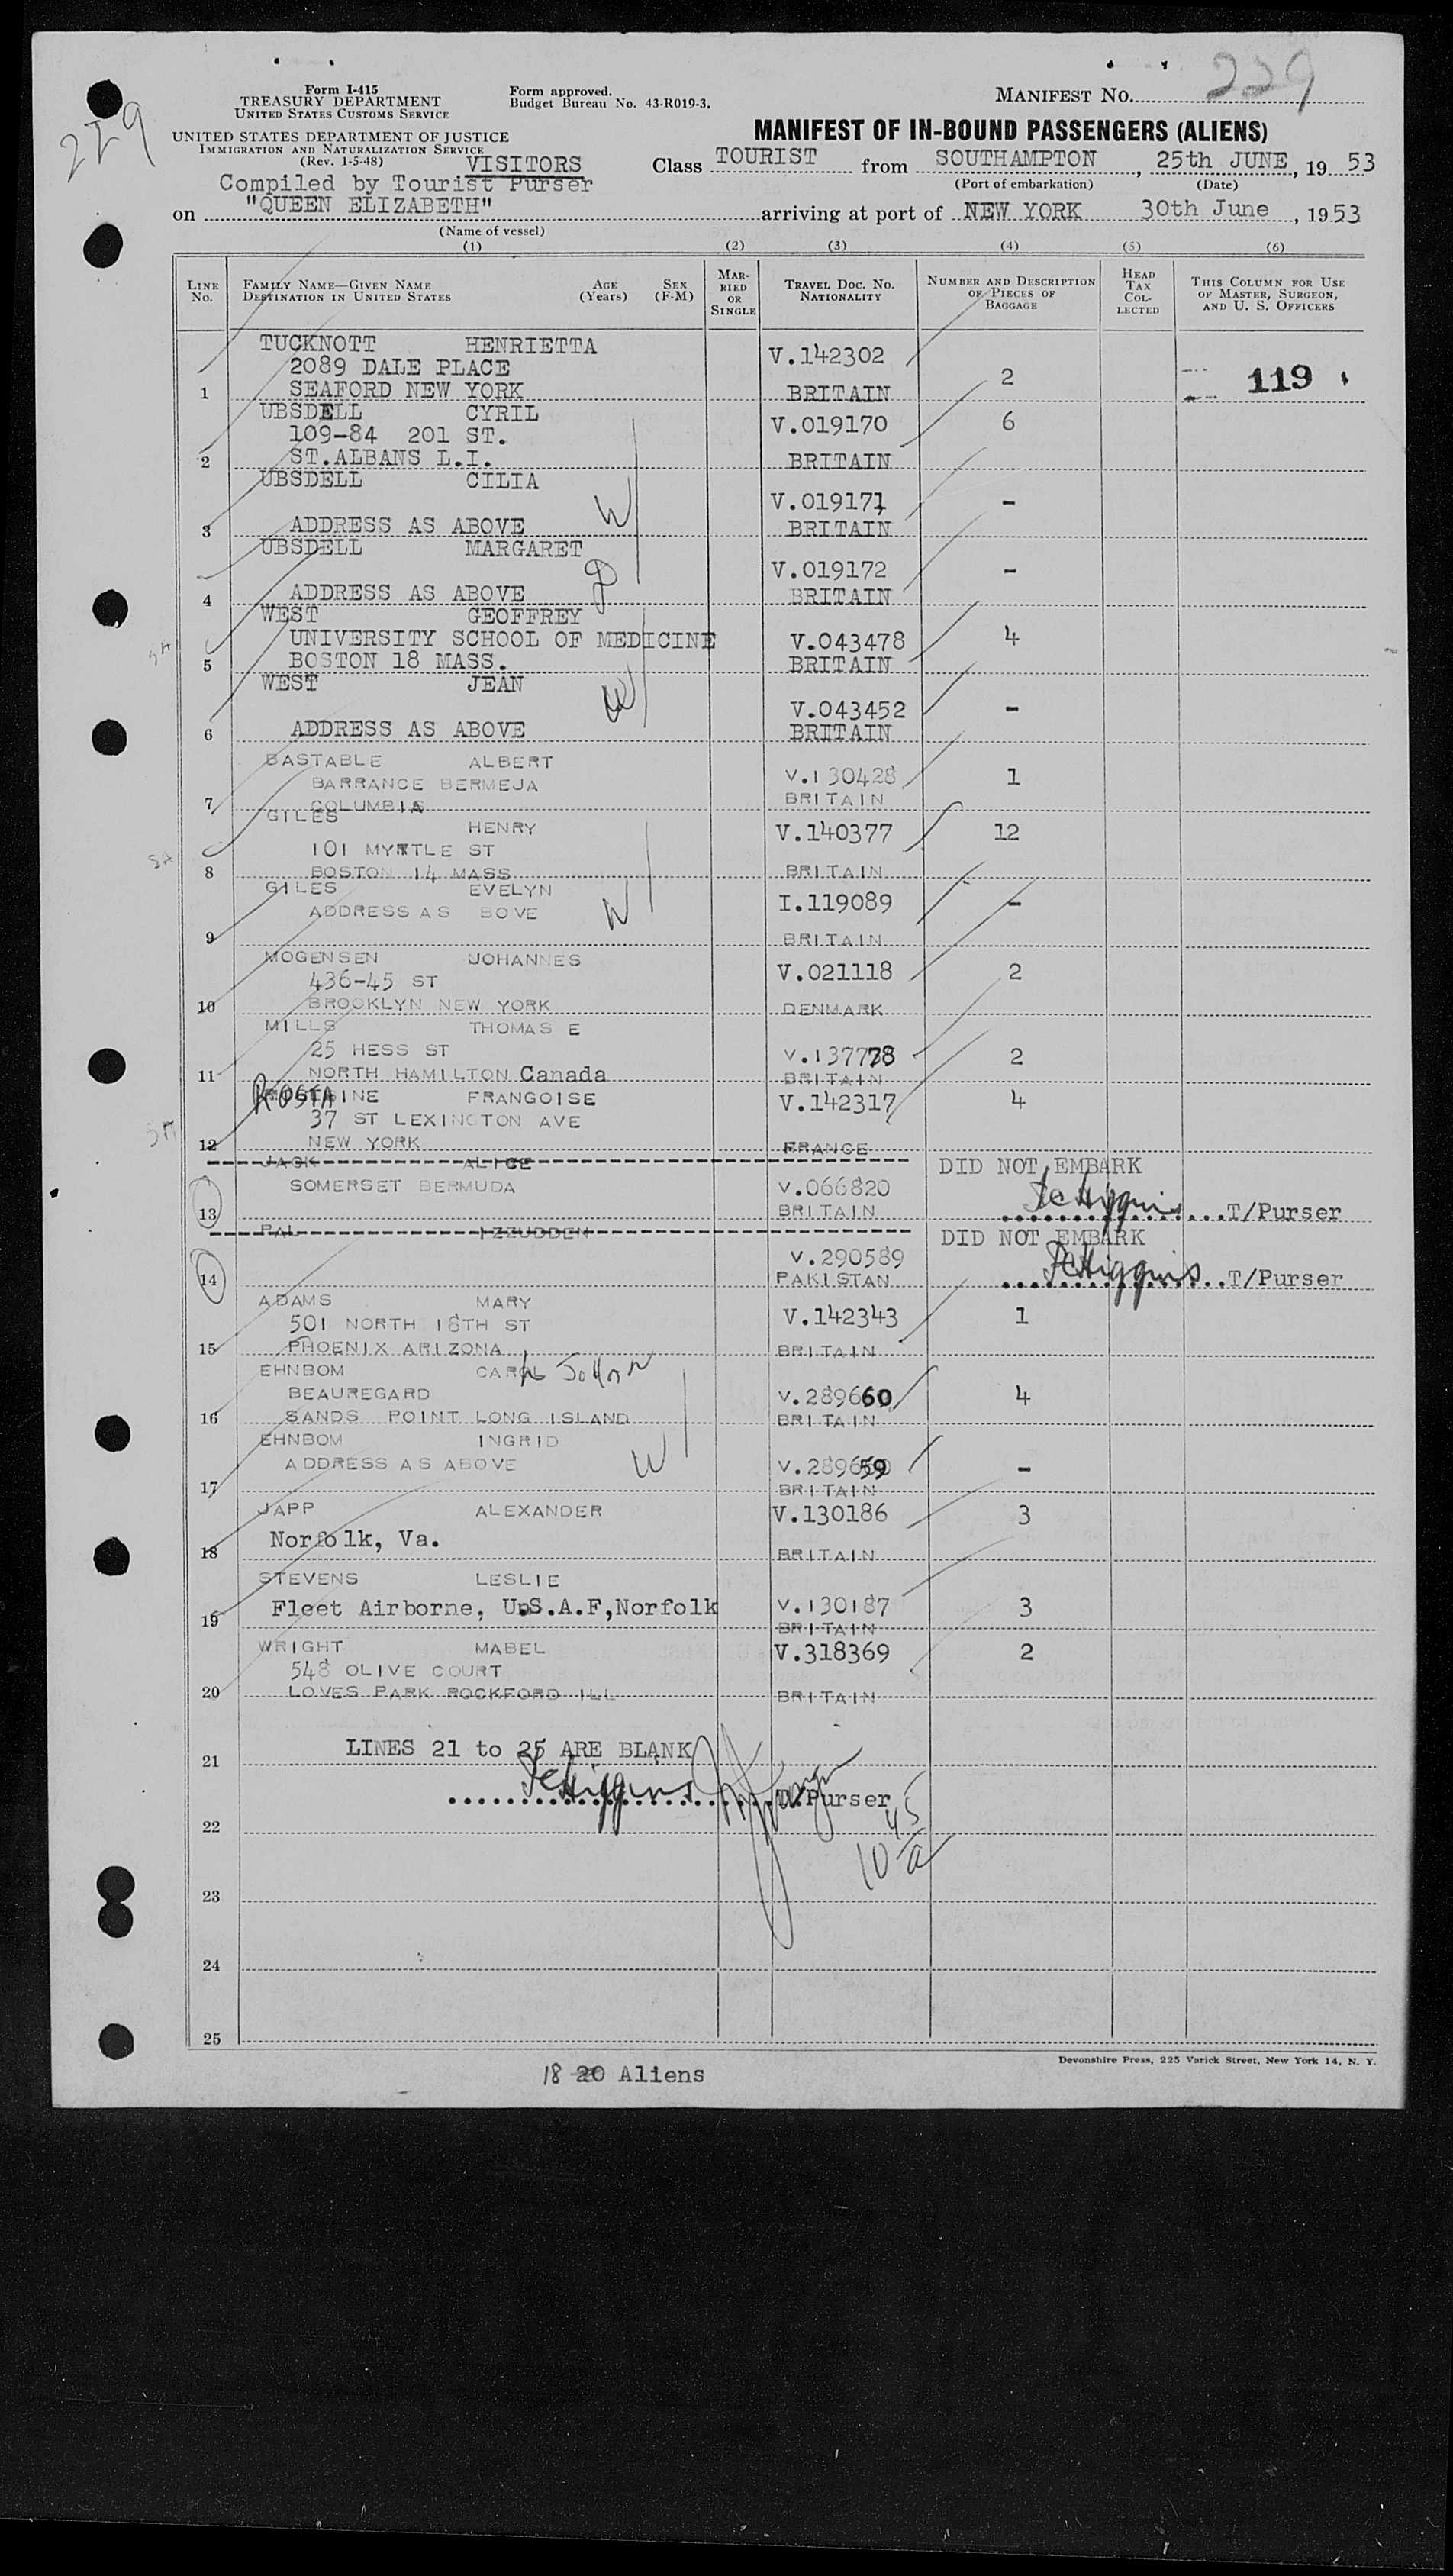 229
229
Form I-415
TREASURY DEPARTMENT
UNITED STATES CUSTOMS SERVICE
UNITED STATES DEPARTMENT OF JUSTICE
IMMIGRATION AND NATURALIZATION SERVICE
(Rev. 1-5-48)
Form approved.
Budget Bureau No. 43-R019-3.
MANIFEST NO.
MANIFEST OF IN-BOUND PASSENGERS (ALIENS)
VISITORS
Class TOURIST from SOUTHAMPTON, 25th JUNE, 19 53
(Port of embarkation) (Date)
Compiled by Tourist Purser
on "QUEEN ELIZABETH" arriving at port of NEW YORK 30th June, 1953
(Name of vessel)
(1) (2) (3) (4) (5) (6)
LINE NO. FAMILY NAME—GIVEN NAME DESTINATION IN UNITED STATES AGE (Years) SEX (F-M) MARRIED OR SINGLE TRAVEL DOC. NO. NATIONALITY NUMBER AND DESCRIPTION OF PIECES OF BAGGAGE HEAD TAX COLLECTED THIS COLUMN FOR USE OF MASTER, SURGEON, AND U. S. OFFICERS
TUCKNOTT HENRIETTA V.142302
2089 DALE PLACE 2 119
1 SEAFORD NEW YORK BRITAIN
UBSDELL CYRIL V.019170 6
109-84 201 ST.
2 ST.ALBANS L.I. BRITAIN
UBSDELL CILIA V.019171 -
W
3 ADDRESS AS ABOVE BRITAIN
UBSDELL MARGARET V.019172 -
4 ADDRESS AS ABOVE BRITAIN
WEST GEOFFREY
UNIVERSITY SCHOOL OF MEDICINE V.043478 4
5 BOSTON 18 MASS. BRITAIN
WEST JEAN W
V.043452 -
6 ADDRESS AS ABOVE BRITAIN
BASTABLE ALBERT
BARRANCE BERMEJA V.130428 1
7 COLUMBIA BRITAIN
GILES HENRY V.140377 12
101 MYRTLE ST
8 BOSTON 14 MASS BRITAIN
GILES EVELYN I.119089 -
ADDRESS AS BOVE W
9 BRITAIN
MOGENSEN JOHANNES V.021118 2
436-45 ST
10 BROOKLYN NEW YORK DENMARK
MILLS THOMAS E
25 HESS ST V.137778 2
11 NORTH HAMILTON Canada BRITAIN
ROSTAINE FRANGOISE V.142317 4
37 ST LEXINGTON AVE
12 NEW YORK FRANCE
JACK ALICE DID NOT EMBARK
SOMERSET BERMUDA V.066820
13 BRITAIN Higgins T/Purser
PAL IZZUDDEN DID NOT EMBARK
V.290589
14 PAKISTAN Higgins T/Purser
ADAMS MARY V.142343 1
501 NORTH 18TH ST
15 PHOENIX ARIZONA BRITAIN
EHNBOM CARL JOHAN
BEAUREGARD V.289660 4
16 SANDS POINT LONG ISLAND BRITAIN
EHNBOM INGRID
ADDRESS AS ABOVE W V.289659 -
17 BRITAIN
JAPP ALEXANDER V.130186 3
Norfolk, Va.
18 BRITAIN
STEVENS LESLIE
Fleet Airborne, U.S.A.F,Norfolk V.130187 3
19 BRITAIN
WRIGHT MABEL V.318369 2
548 OLIVE COURT
20 LOVES PARK ROCKFORD ILL BRITAIN
LINES 21 to 25 ARE BLANK
21
Higgins T.Purser
22
10 45 a
23
24
25
Devonshire Press, 225 Varick Street, New York 14, N. Y.
18 20 Aliens